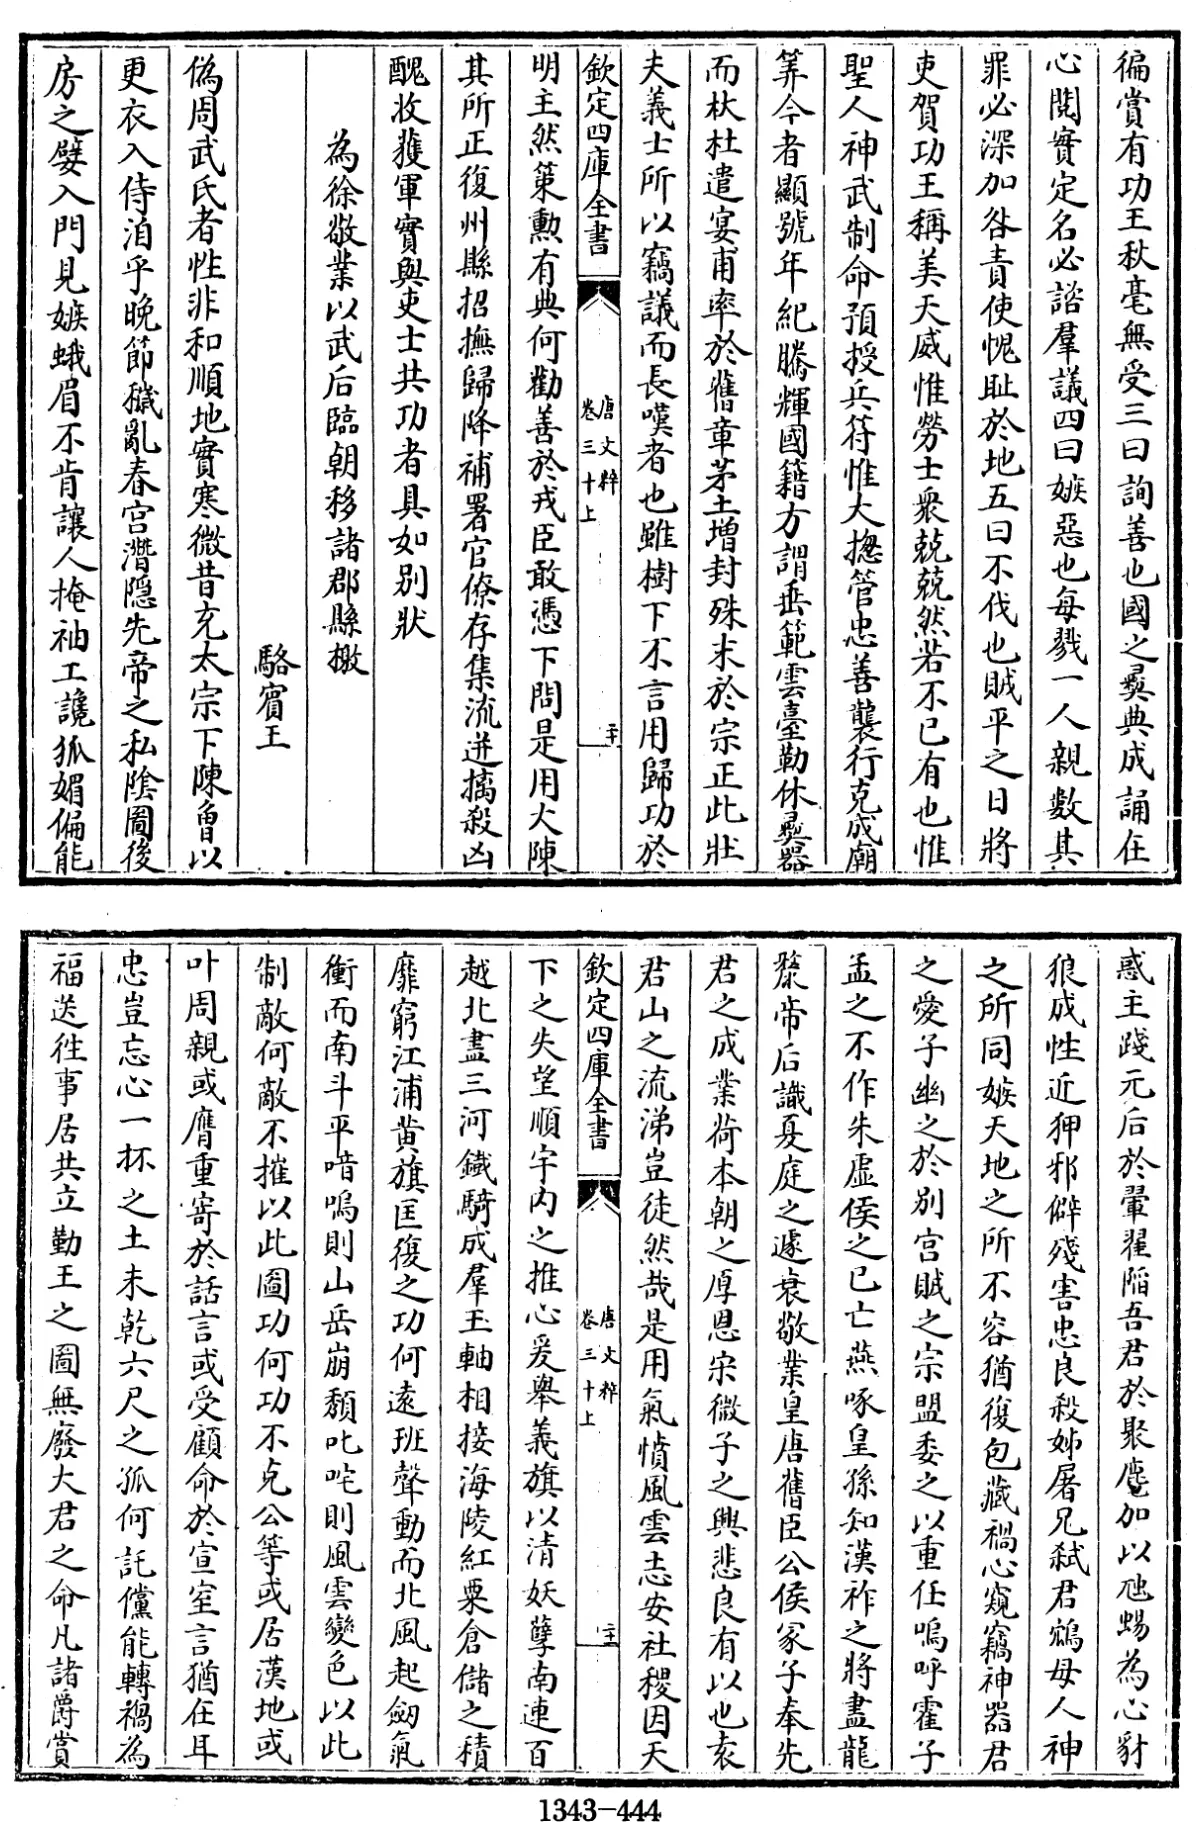 徧賞有功王秋毫無受三曰詢善也國之彞典成誦在
心閱實定名必諮羣議四曰嫉惡也每戮一人親數其
罪必深加咎責使愧耻於地五曰不伐也賊平之日將
吏賀功王稱美天威惟勞士衆兢兢然若不已有也惟
聖人神武制命預授兵符惟大揔管忠善襲行克成廟
筭今者顯號年紀騰輝國籍方謂垂範雲臺勒休彞器
而杕杜遣宴甫率於舊章茅土增封殊未於宗正此壯
夫義士所以竊議而長嘆者也雖樹下不言用歸功於
欽定四庫全書
唐文粹
卷三十上
二十
明主然策勲有典何勸善於戎臣敢憑下問是用大陳
其所正復州縣招撫歸降補署官僚存集流迸擒殺凶
醜收獲軍實與吏士共功者具如别狀
為徐敬業以武后臨朝移諸郡縣檄
駱賓王
偽周武氏者性非和順地實寒微昔充太宗下陳曾以
更衣入侍洎乎晚節穢亂春宮潛隱先帝之私陰圖後
房之嬖入門見嫉蛾眉不肯讓人掩袖工讒狐媚偏能
惑主踐元后於翬翟陷吾君於聚麀加以虺蜴為心豺
狼成性近狎邪僻殘害忠良殺姊屠兄弑君鴆母人神
之所同嫉天地之所不容猶復包藏禍心窺竊神器君
之愛子幽之於别宮賊之宗盟委之以重任嗚呼霍子
孟之不作朱虛侯之已亡燕啄皇孫知漢祚之將盡龍
漦帝后識夏庭之遽衰敬業皇唐舊臣公侯冢子奉先
君之成業荷本朝之厚恩宋微子之興悲良有以也袁
君山之流涕豈徒然哉是用氣憤風雲志安社稷因天
欽定四庫全書
唐文粹
卷三十上
二十一
下之失望順宇内之推心爰舉義旗以清妖孽南連百
越北盡三河鐵騎成羣玉軸相接海陵紅粟倉儲之積
靡窮江浦黄旗匡復之功何遠班聲動而北風起劒氣
衝而南斗平喑嗚則山岳崩頽叱咤則風雲變色以此
制敵何敵不摧以此圖功何功不克公等或居漢地或
叶周親或膺重寄於話言或受顧命於宣室言猶在耳
忠豈忘心一抔之土未乾六尺之孤何託儻能轉禍為
福送往事居共立勤王之圖無廢大君之命凡諸爵賞
1343-444